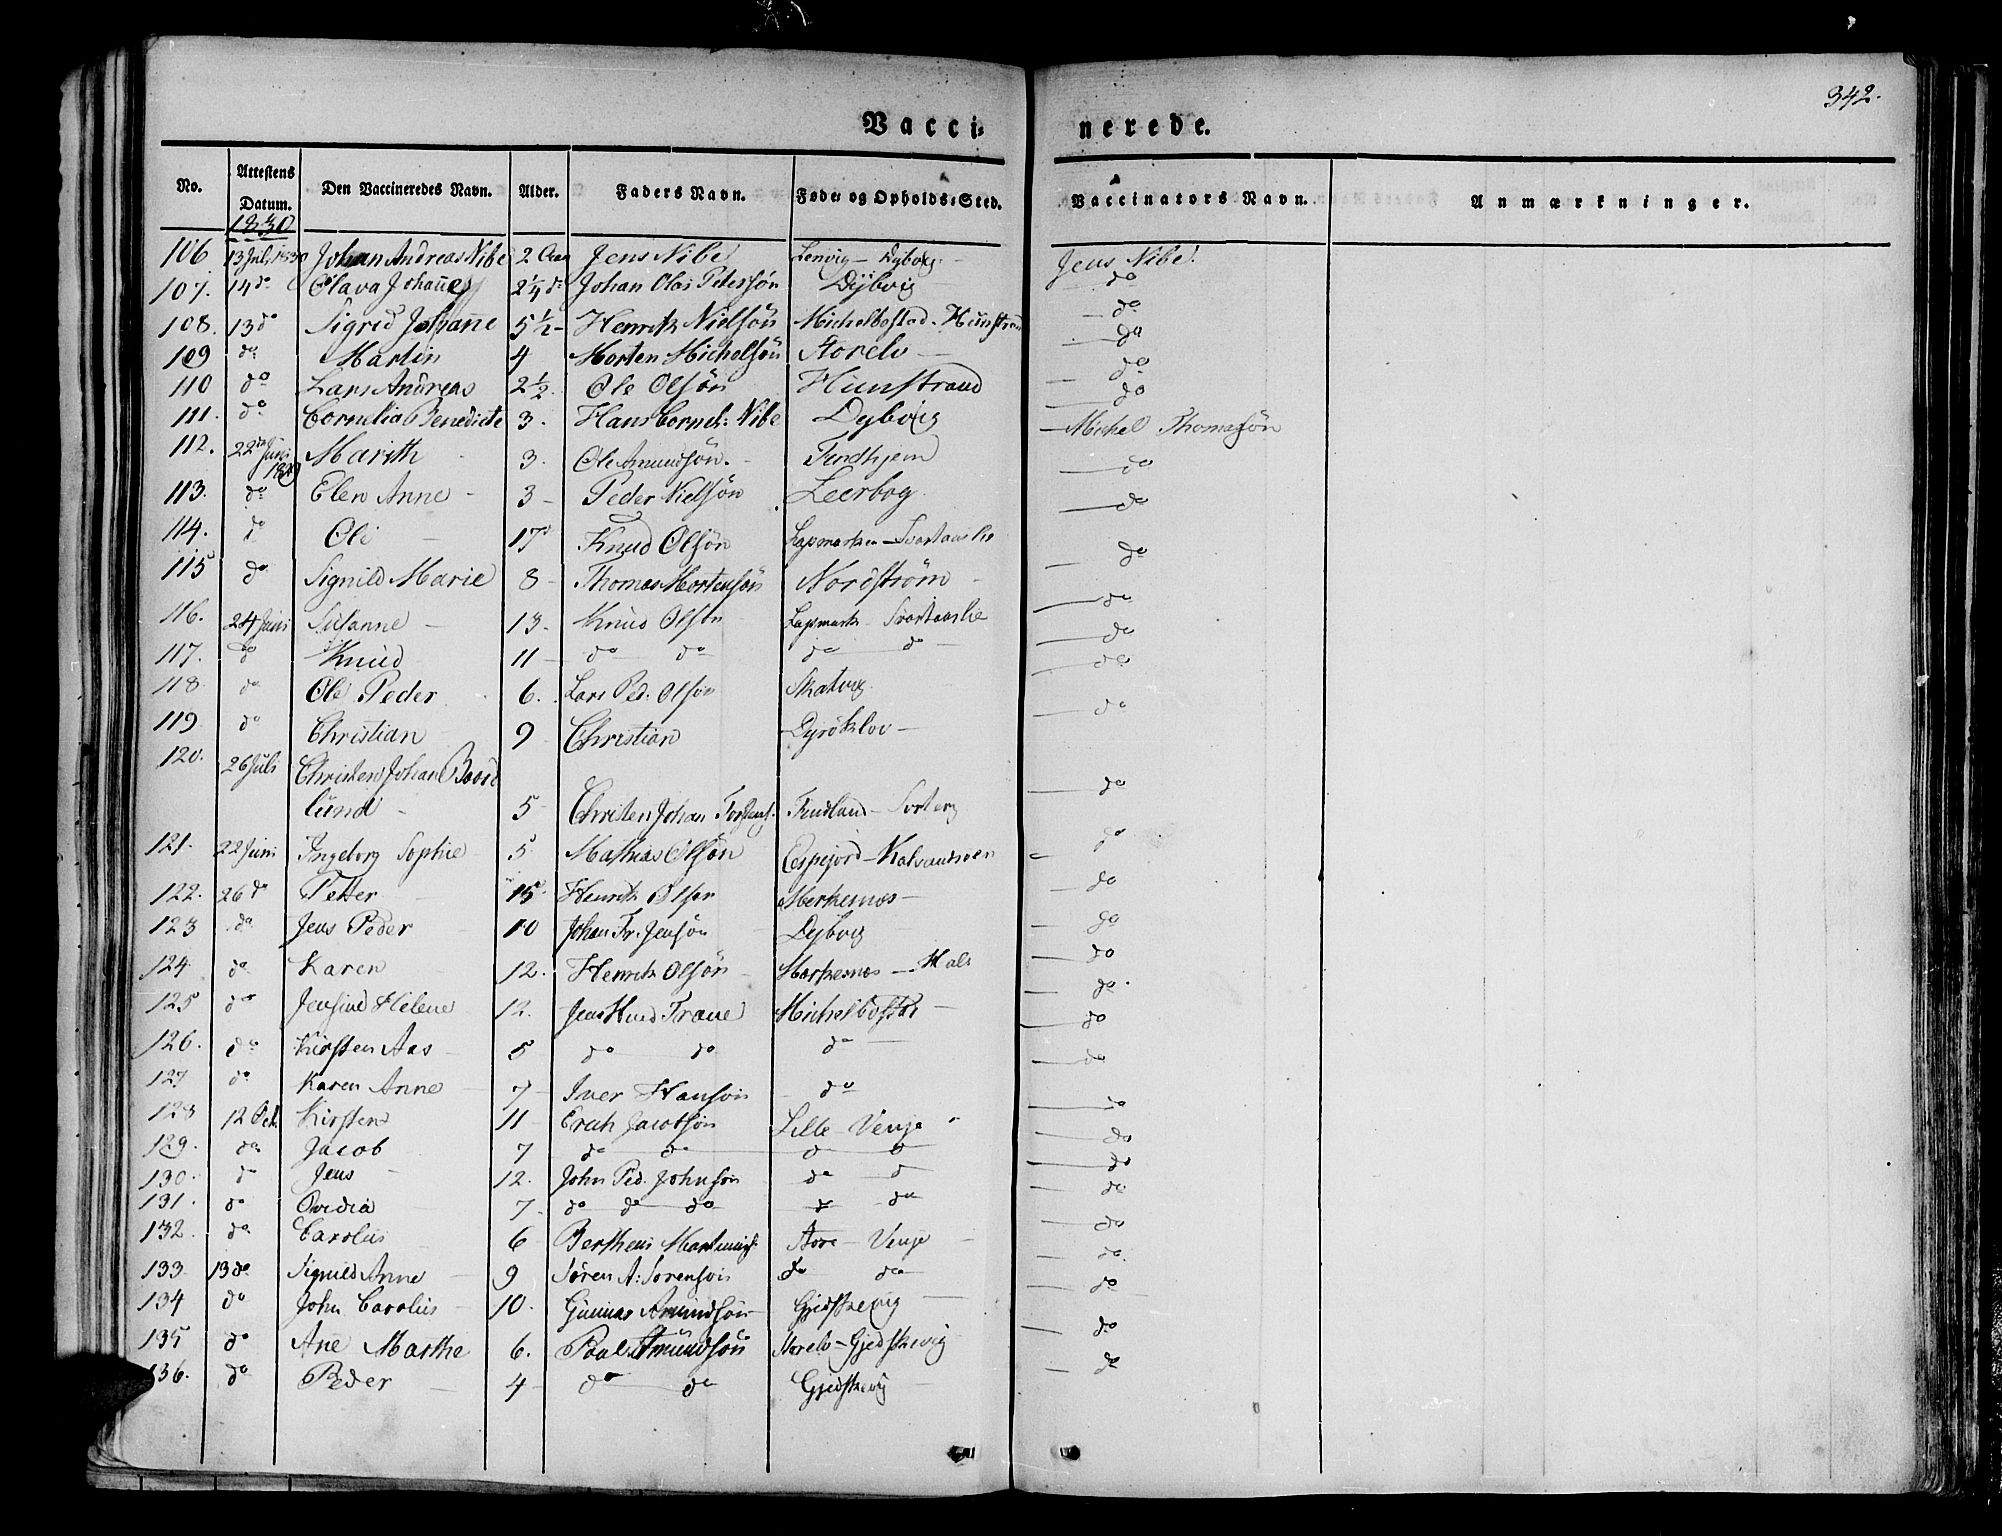 342.
Vacci- nerede.
No. Attestens Datum. Den Vaccineredes Navn. Alder. Faders Navn. Føde- og Opholds-Sted. Vaccinators Navn. Anmærkninger.
1830
106 13 Juli 1830 Johan Andreas Nibe 2 Aar Jens Nibe Lenvig - Dybvig - Jens Nibe.
107. 14 do Olava Johanne 2 1/4 do Johan Olai Peterssøn Dÿbvig - do
108. 13 do Sigrid Johanne 5 1/2 - Henrik Nielsøn Michelbostad - Hunstrand - do
109 do Martin 4 Morten Michelsøn Storelv - do
110 do Lars Andreas 2 1/2. Ole Olsøn Hunstrand - do
111. do Cornelia Benedicte 3. Hans Cornel: Nibe Dybvig - do
112. 22 Juni 1830 Marith - 3. Ole Amundsøn. - Findhjem - Michel Thomasøn
113. do Elen Anne - 3 - Peder Nielsøn Leerbog. - do
114. do Ole - 17 Knud Olsøn Lapmarken - Svartaaslie - do
115 do Signild Marie 8 - Thomas Mortensøn Nordstrøm - - do
116. 24 Juni Susanne - 13. Knud Olsøn Lapmark - Svartaaslie - do
117. do Knud 11 - do do do do - do
118. do Ole Peder 6. Lars Ped. Olsøn Skatvig - do
119 do Christian 9 - Christian Dyrøklov - - do
120. 26 Juli Christen Johan Boord
lund - 5 - Christen Johan Findland - - do
121. 22 Juni Ingeborg Sophie 5 Mathias Olsøn Espejord - - do
122. 26 do Petter - 15 Henrik Olsøn Merkesnæs - - do
123 do Jens Peder - 10 Johan Fr. Jensøn Dybvig - do
124. do Karen 12. Henrik Olsøn - Markesnæs - - do
125 do Jensine Helene 12. Jens Hind Trane Michelbostad - - do.
126. do Kirsten Aas - 5 do do do - do
127 do Karen Anne - 7 - Iver Hansøn - do - do
128 12 Oct. Kirsten 11 - Erich Jacobsøn Lille Venje - do
129. do Jacob 7 do do do do - do
130. do Jens - 12. John Ped. Johnsøn do do - do
131. do Ovidia 7. do do do do do - do
132. do Carolus 6 - Bertheus Store - Venje - - do
133. 13 do Signild Anne - 9 Søren A: Sørensøn do do - do.
134 do John Carolus - 10. Gunnar Amundsøn - Gjedskevig - - do
135 do Ane Marthe 6. Poul Amundsøn Storelv - Gjedskevig - do
136. do Peder - 4 - do do Gjedskevig - - do